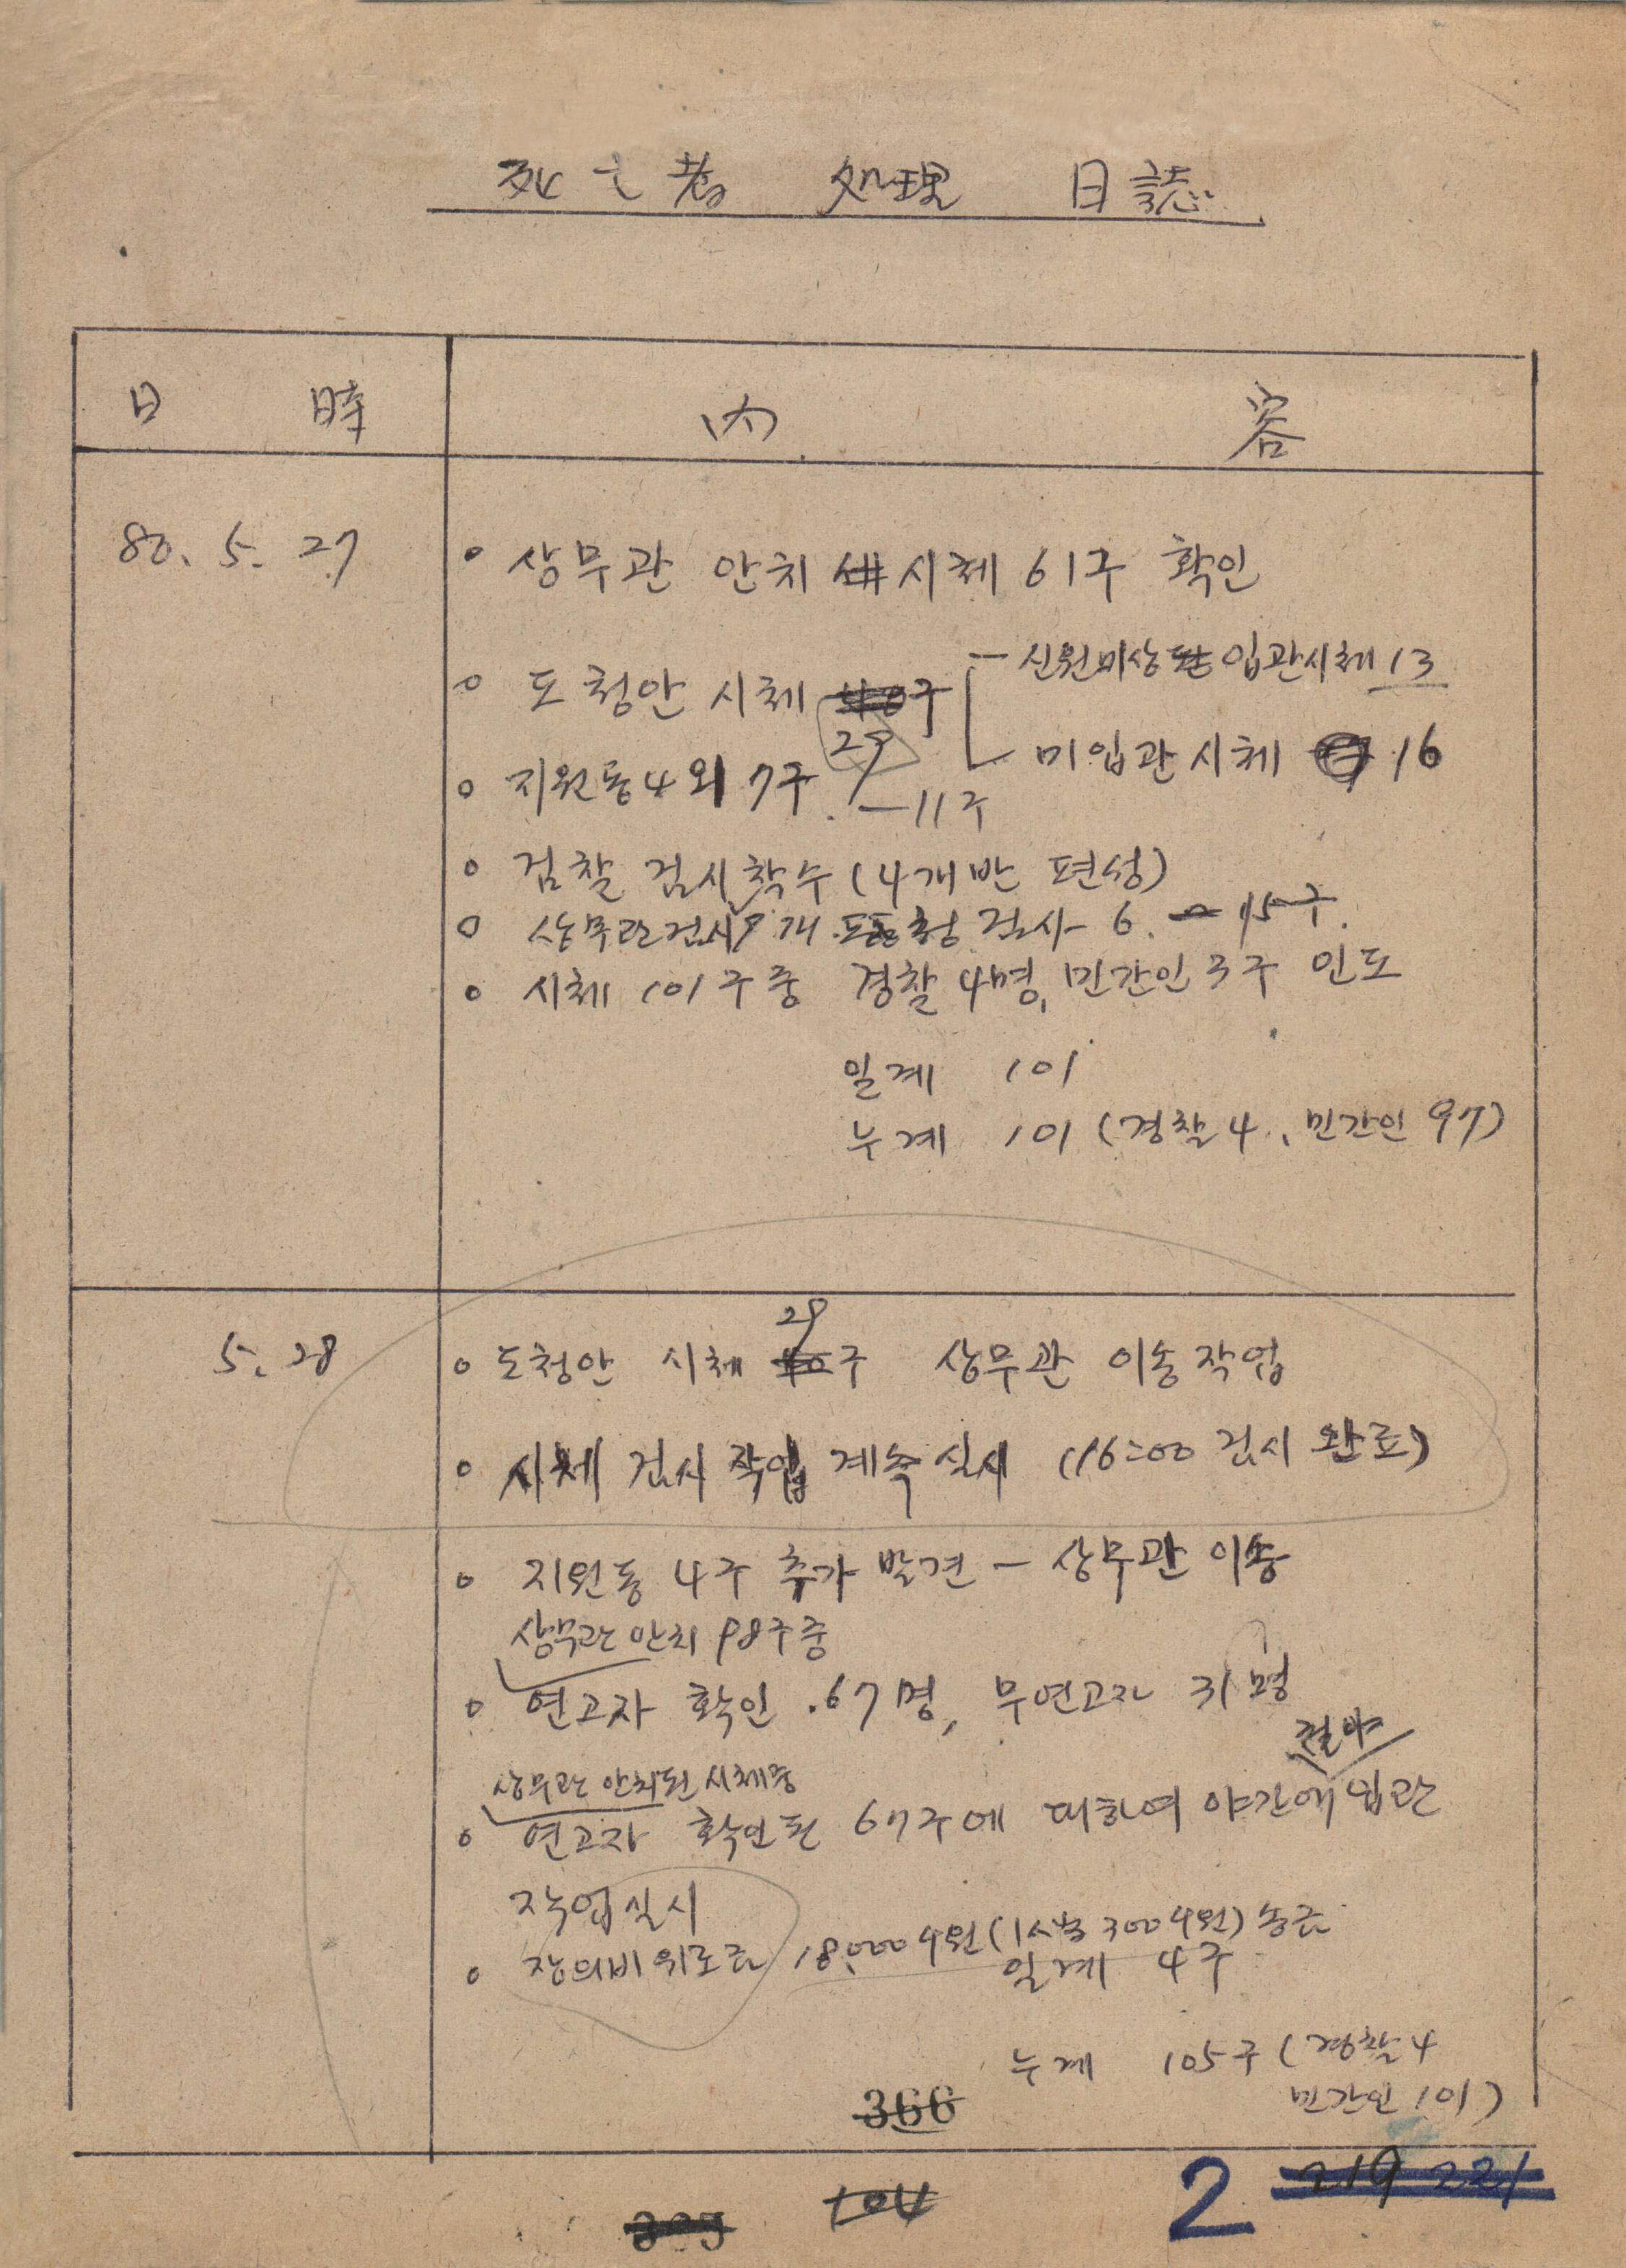 死亡者 処理 日誌
日 時 內 容
80. 5. 27
○ 상무관 안치 시체 61구 확인
○ 도청안 시체 40구 29
- 신원미상 입관시체 13
- 미입관시체 16
○ 지원동 4 외 7구 - 11구
○ 검찰 검시착수 (4개반 편성)
○ 상무관검시 9개 도청 검사 6. - 15구.
○ 시체 101구중 경찰 4명, 민간인 3구 인도
일계 101
누계 101 (경찰 4, 민간인 97)
5. 28
○ 도청안 시체 29구 상무관 이송작업
○ 시체 검시 작업 계속 실시 (16:00 검시 완료)
○ 지원동 4구 추가 발견 - 상무관 이송
상무관 안치 98구중
○ 연고자 확인 67명, 무연고자 31명
철야
상무관 안치된 시체중
○ 연고자 확인된 67구에 대하여 야간에 입관
작업실시
○ 장의비 위로금 18,000 (1 300 ) 송금
일계 4구
누계 105구 (경찰 4
민간인 101)
366
104
2 219 221